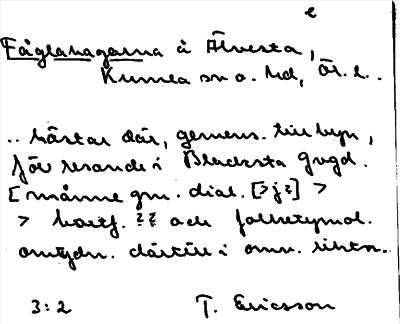 e
Fåglahagarna å Älvesta,
Kumla sn o. hd, Ör. l.
.. hästar där, gemens. till byn,
för resande i Blacksta gvgd.
[månne gm. dial. [>j?] >
> hortf. ?? och folketymol.
omtydn. därtill i omv. riktn.
3:2 T. Ericsson